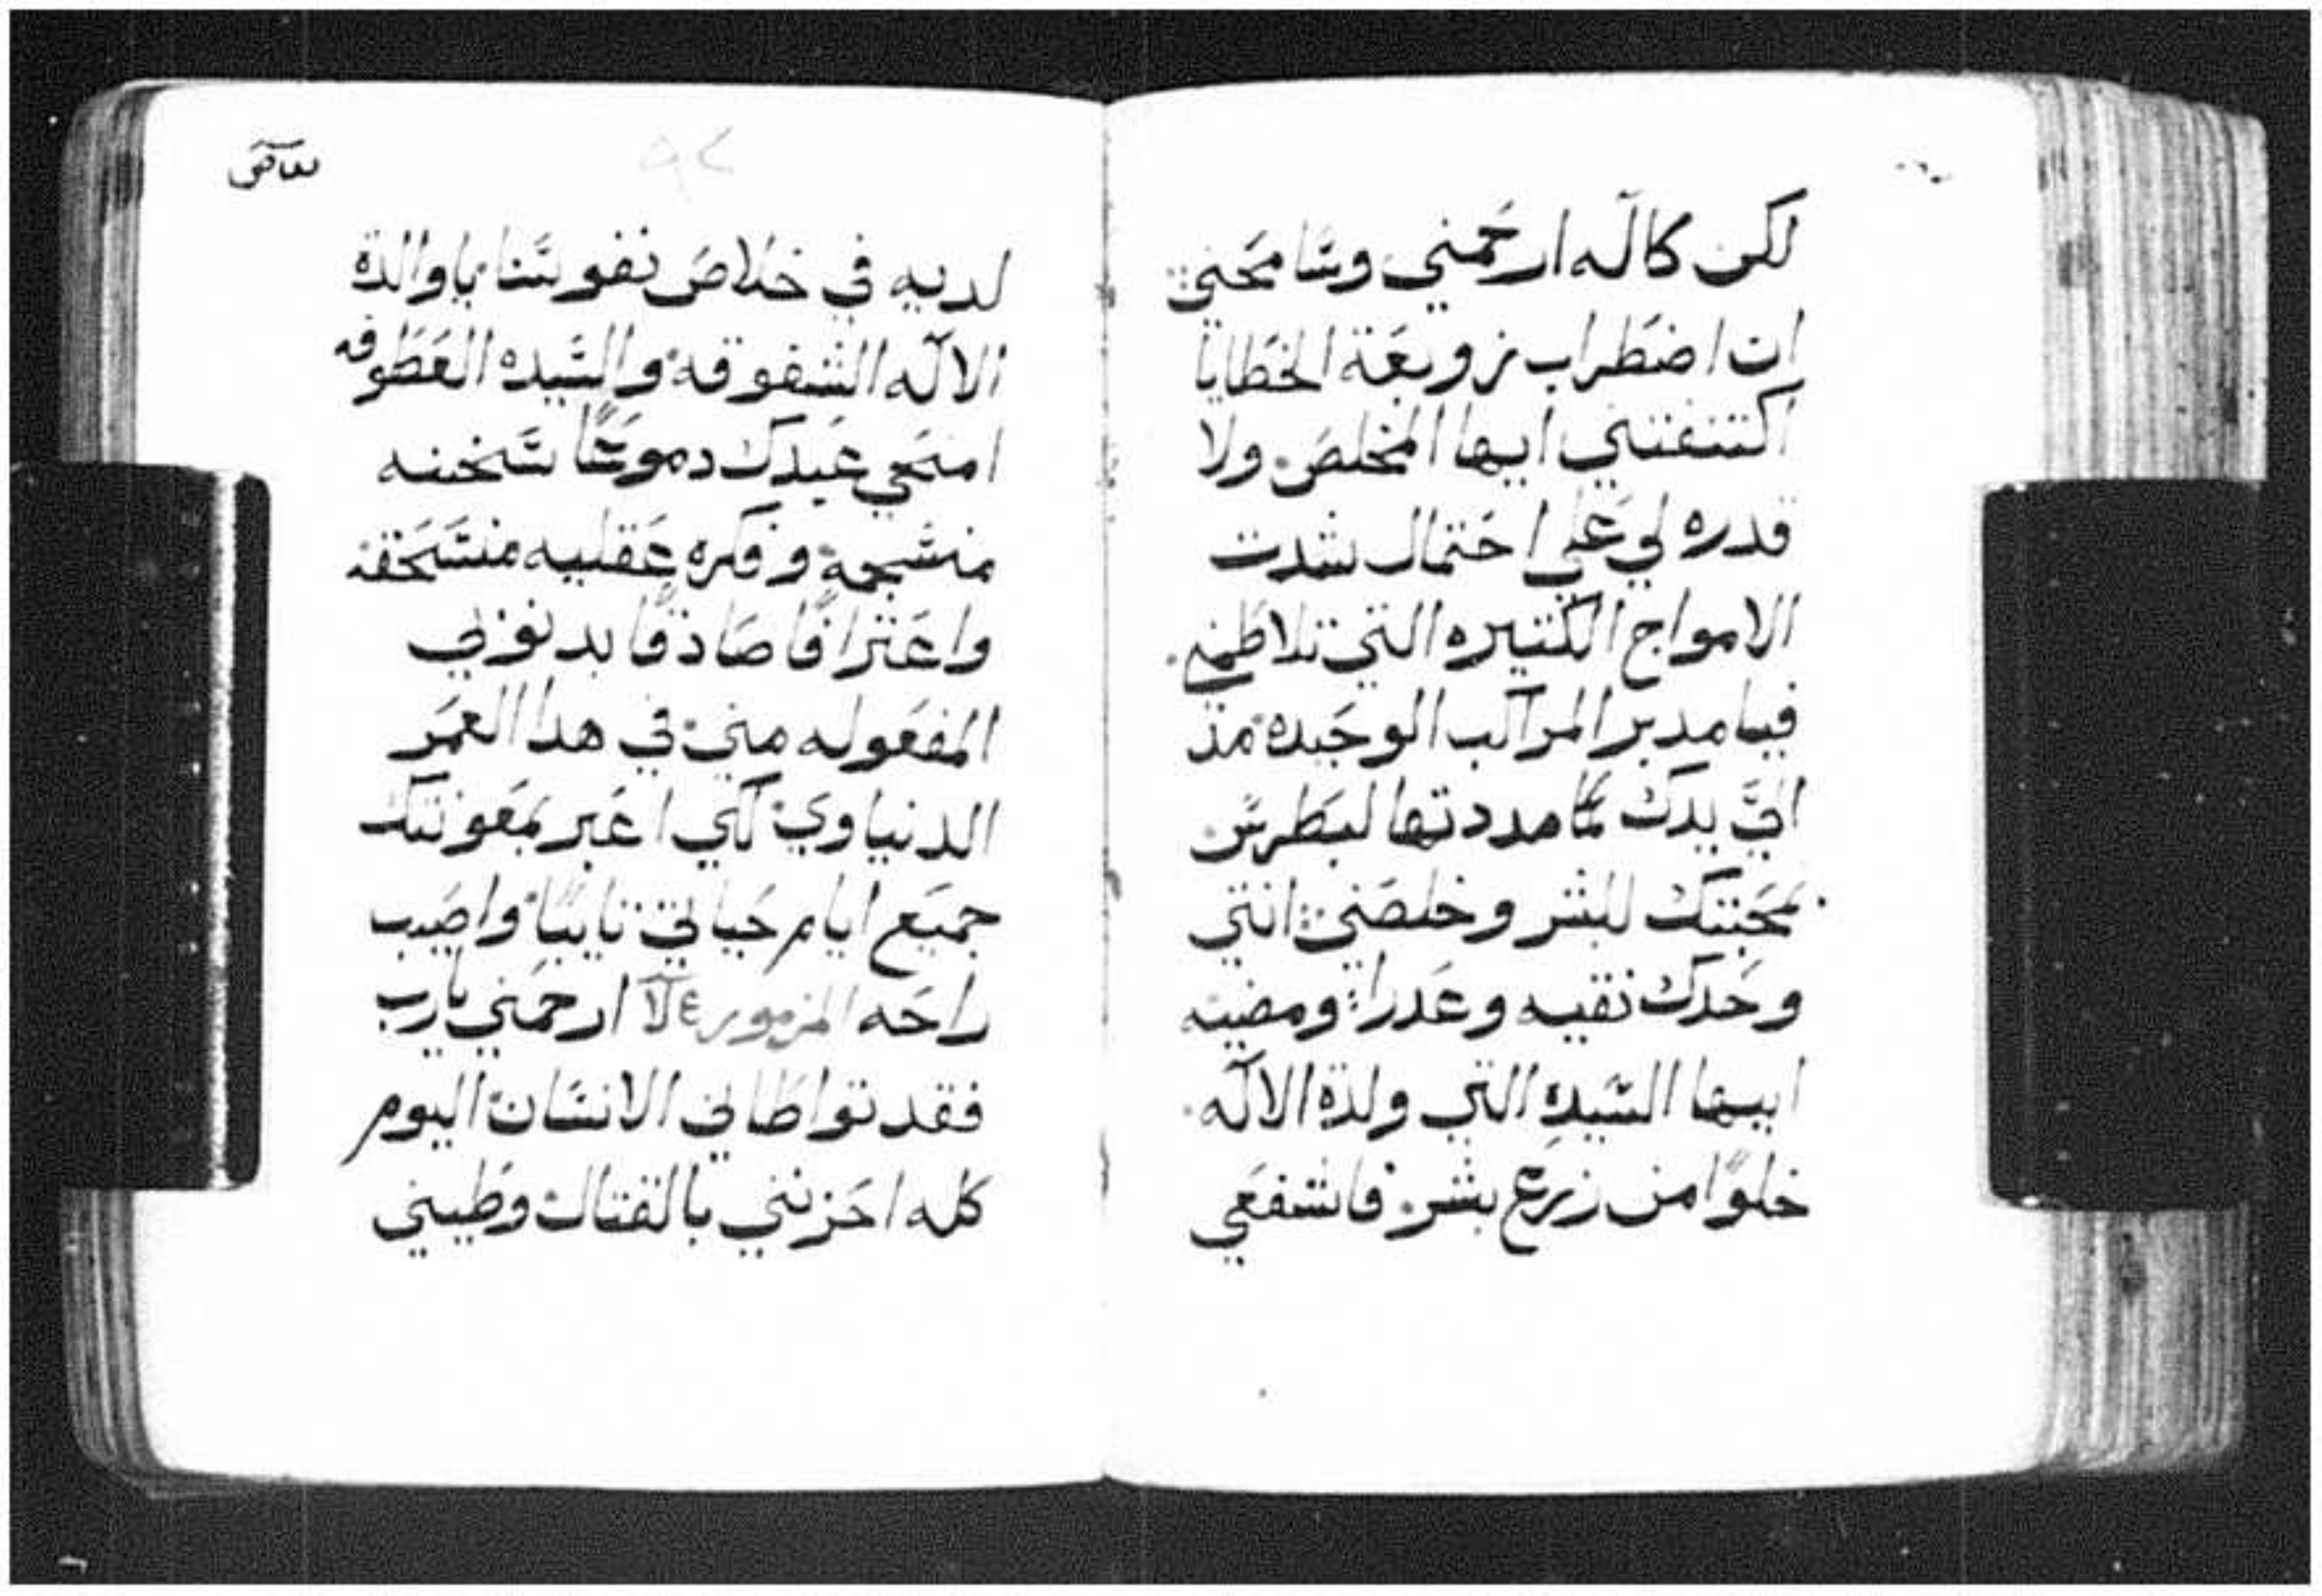 لكن كاله ارحمني وسامحني
ان اضطراب زوبعة الخطايا
اكتنفتني ايها المخلص ولا
قدره لي علي احتمال شدت
الامواج الكتيره التي تلاطمني
فيا مدبر المراكب الوحيده مذ
الي يدك كما مددتها لبطرس
بمحبتك للبشر وخلصني انتي
وحدك نقيه وعدرا ومضيه
ايها السيده التي ولدة الاله
خلوًا من زرع بشر فاشفعي
لديه في خلاص نفوسنا ياوالدة
الاله الشفوقه والسيده العطوفه
امنحي عبدك دموعًا سخينه
منسجمة وفكره عقليه منسحقه
واعترافًا صادقًا بدنوبي
المفعوله مني في هدا العمر
الدنياوي لكي اعبر بمعونتك
جميع ايام حياتي تايبًا واصيب
راحه المزمور ارحمني يارب
فقد تواطاني الانسان اليوم
كله احزنني بالقتال وطيني